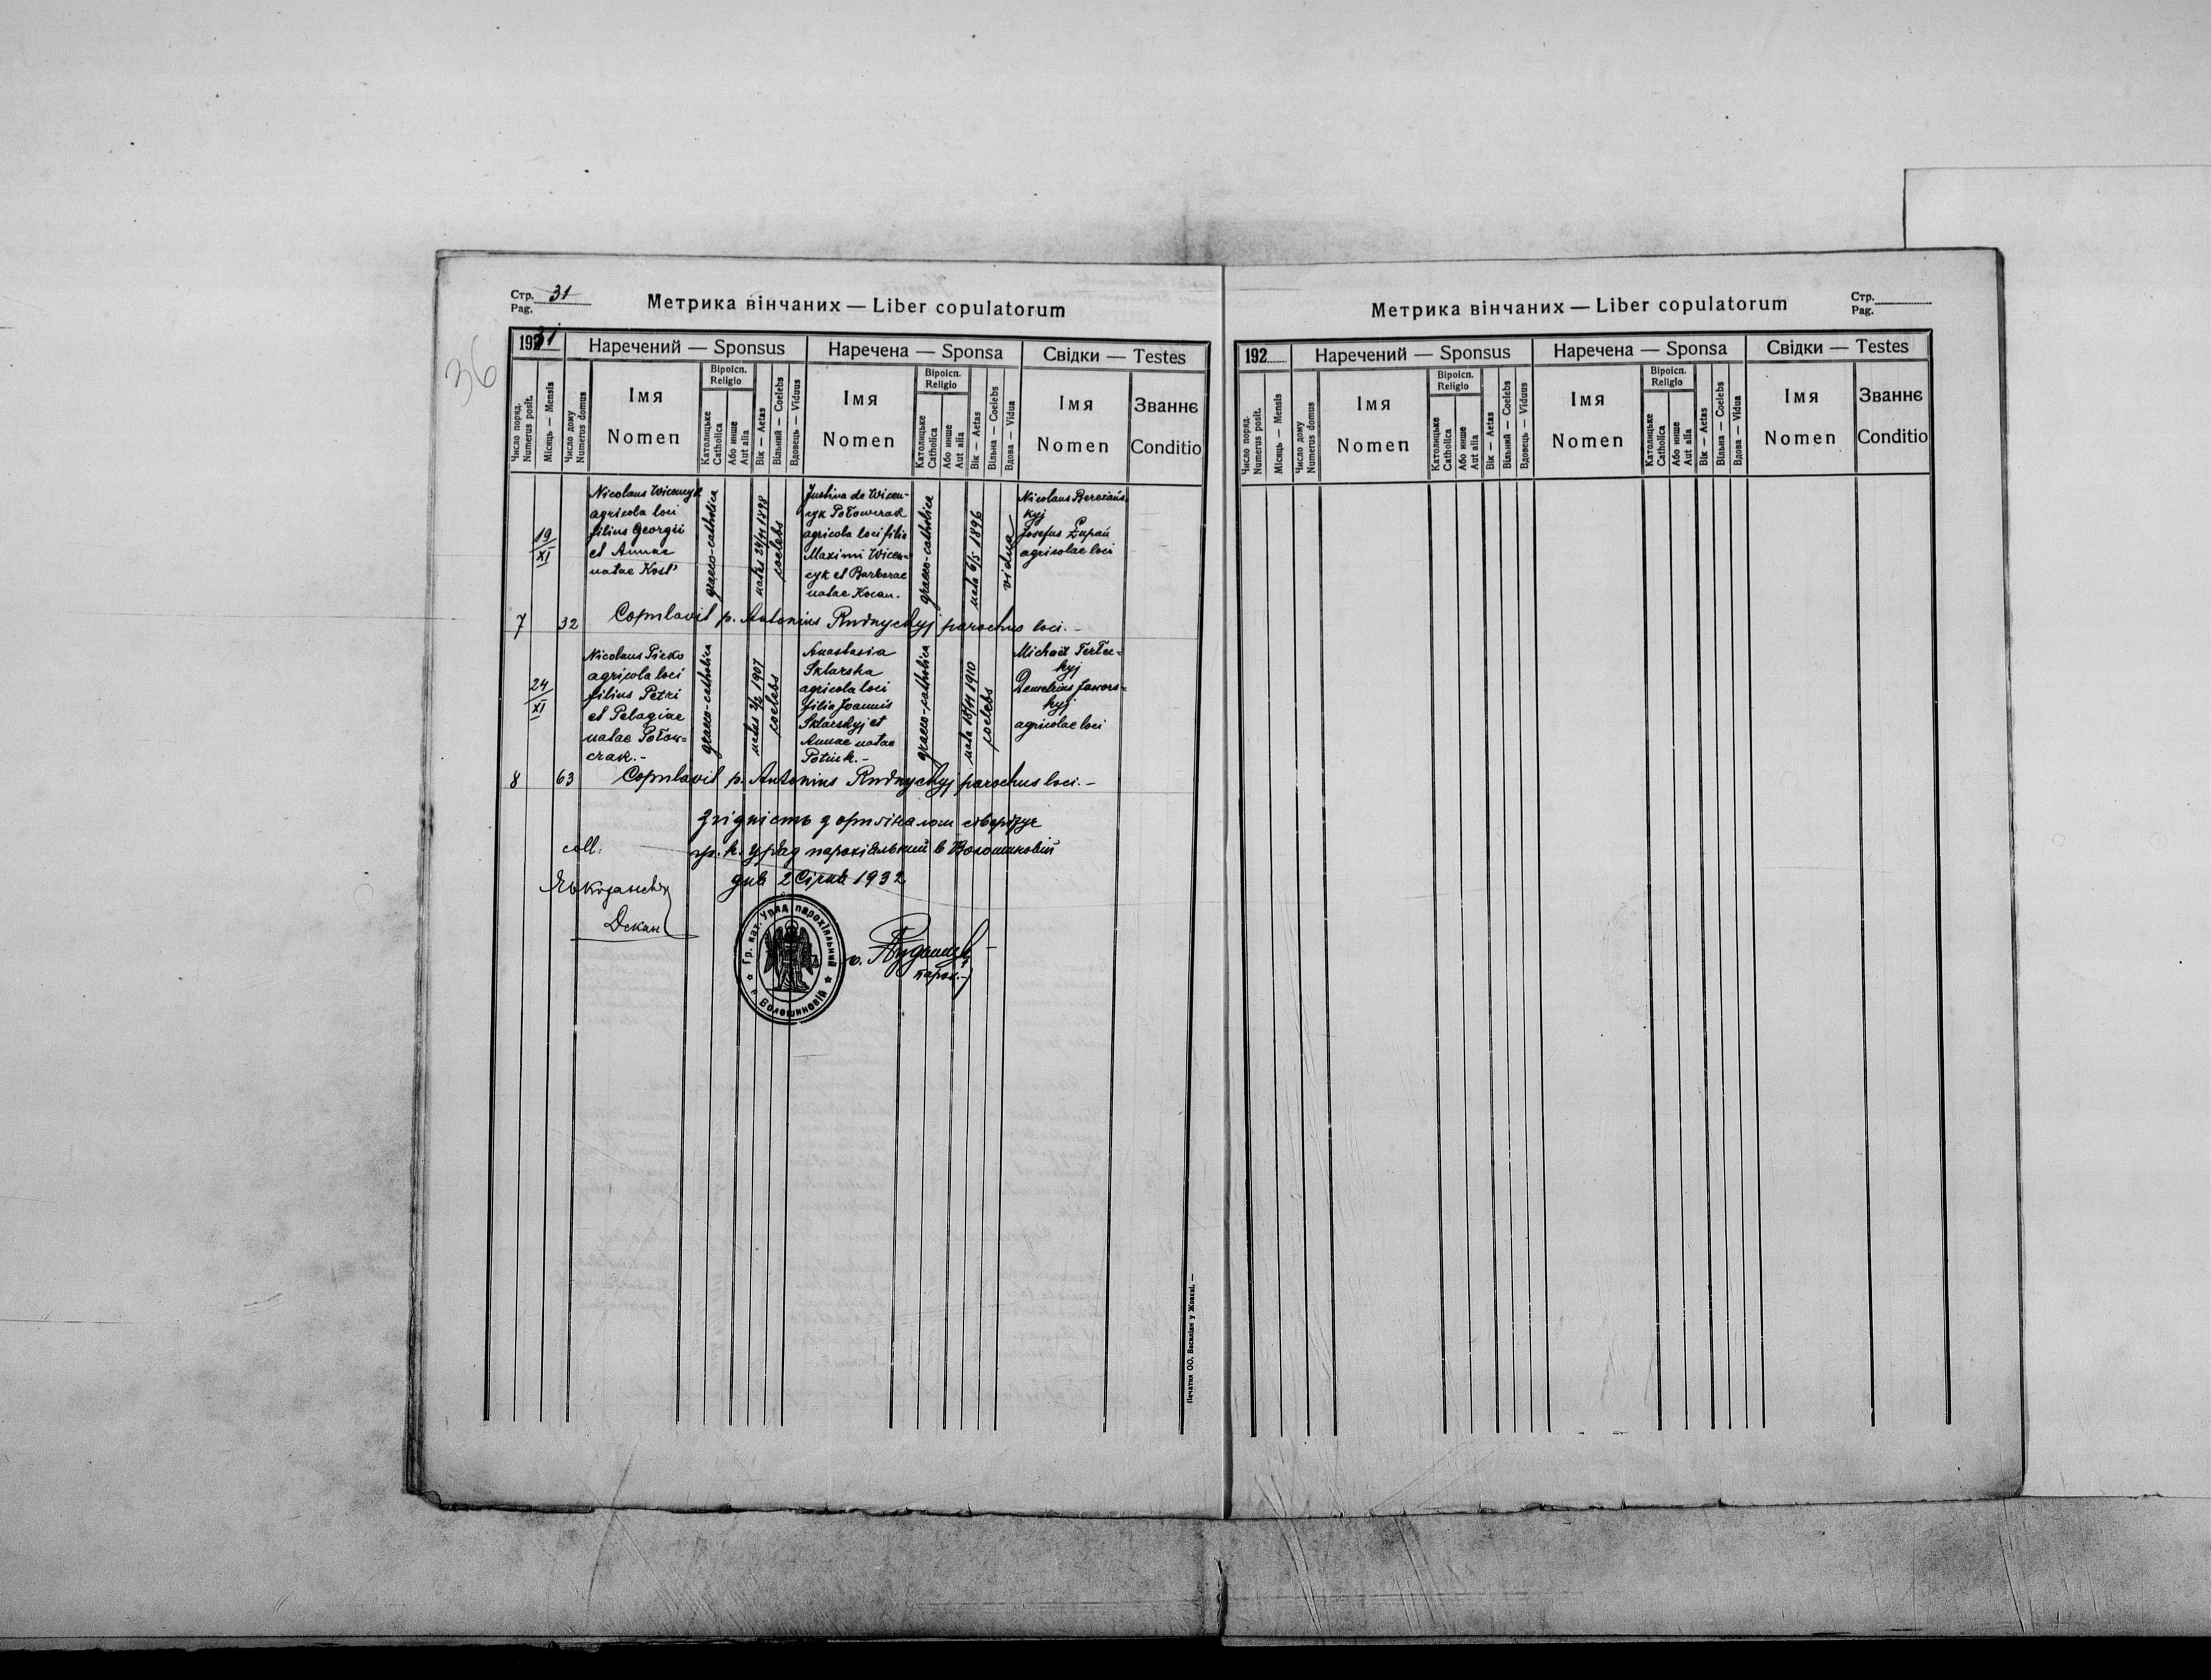 36
Стр. 31
Pag.
Метрика вінчаних — Liber copulatorum
1931
Наречений — Sponsus
Наречена — Sponsa
Свідки — Testes
Число поряд.
Numerus posit.
Місяць — Mensis
Число дому
Numerus domus
Імя
Nomen
Віроісп.
Religio
Католицьке
Catholica
Або инше
Aut alia
Вік — Aetas
Вільний — Coelebs
Вдовець — Viduus
Імя
Nomen
Віроісп.
Religio
Католицьке
Catholica
Або инше
Aut alia
Вік — Aetas
Вільна — Coelebs
Вдова — Vidua
Імя
Nomen
Званнє
Conditio
19/XI
Nicolaus Wicenczyk
agricola loci
filius Georgii
et Annae
natae Kost'
graeco-catholica
natus 24/11 1898
coelebs
Justina de Wicen-
cyk Połowczak
agricola loci filia
Maximi Wicen-
cyk et Barbarae
natae Kocan.
graeco-catholica
nata 6/5 1896
vidua
Nicolaus Bereżańs-
kyj
Josefus Żupań
agricolae loci
7 32 Copulavit p. Antonius Rudnyckyj parochus loci.-
24/XI
Nicolaus Picko
agricola loci
filius Petri
et Pelagiae
natae Połow=
czak.-
graeco-catholica
natus 1907
coelebs
Anastasia
Sklarska
agricola loci
filia Joannis
Sklarskyj et
Annae natae
graeco-catholica
nata 18/11 1910
coelebs
Michael Terłec=
kyj
Demetrius Jawors=
kyj
agricolae loci
8 63 Copulavit p. Antonius Rudnyckyj parochus loci.-
Згідність з оригіналом стверджує
coll: гр. к. уряд парохіяльний в Волошиновій
дня 2 Січня 1932
Декан
Гр. кат. Уряд парохіяльний
в Волошиновій
о. Рудницький
парох.-
Печатня ОО. Василіян у Жовкві. —
Метрика вінчаних — Liber copulatorum
Стр.
Pag.
192
Наречений — Sponsus
Наречена — Sponsa
Свідки — Testes
Число поряд.
Numerus posit.
Місяць — Mensis
Число дому
Numerus domus
Імя
Nomen
Віроісп.
Religio
Католицьке
Catholica
Або инше
Aut alia
Вік — Aetas
Вільний — Coelebs
Вдовець — Viduus
Імя
Nomen
Віроісп.
Religio
Католицьке
Catholica
Або инше
Aut alia
Вік — Aetas
Вільна — Coelebs
Вдова — Vidua
Імя
Nomen
Званнє
Conditio